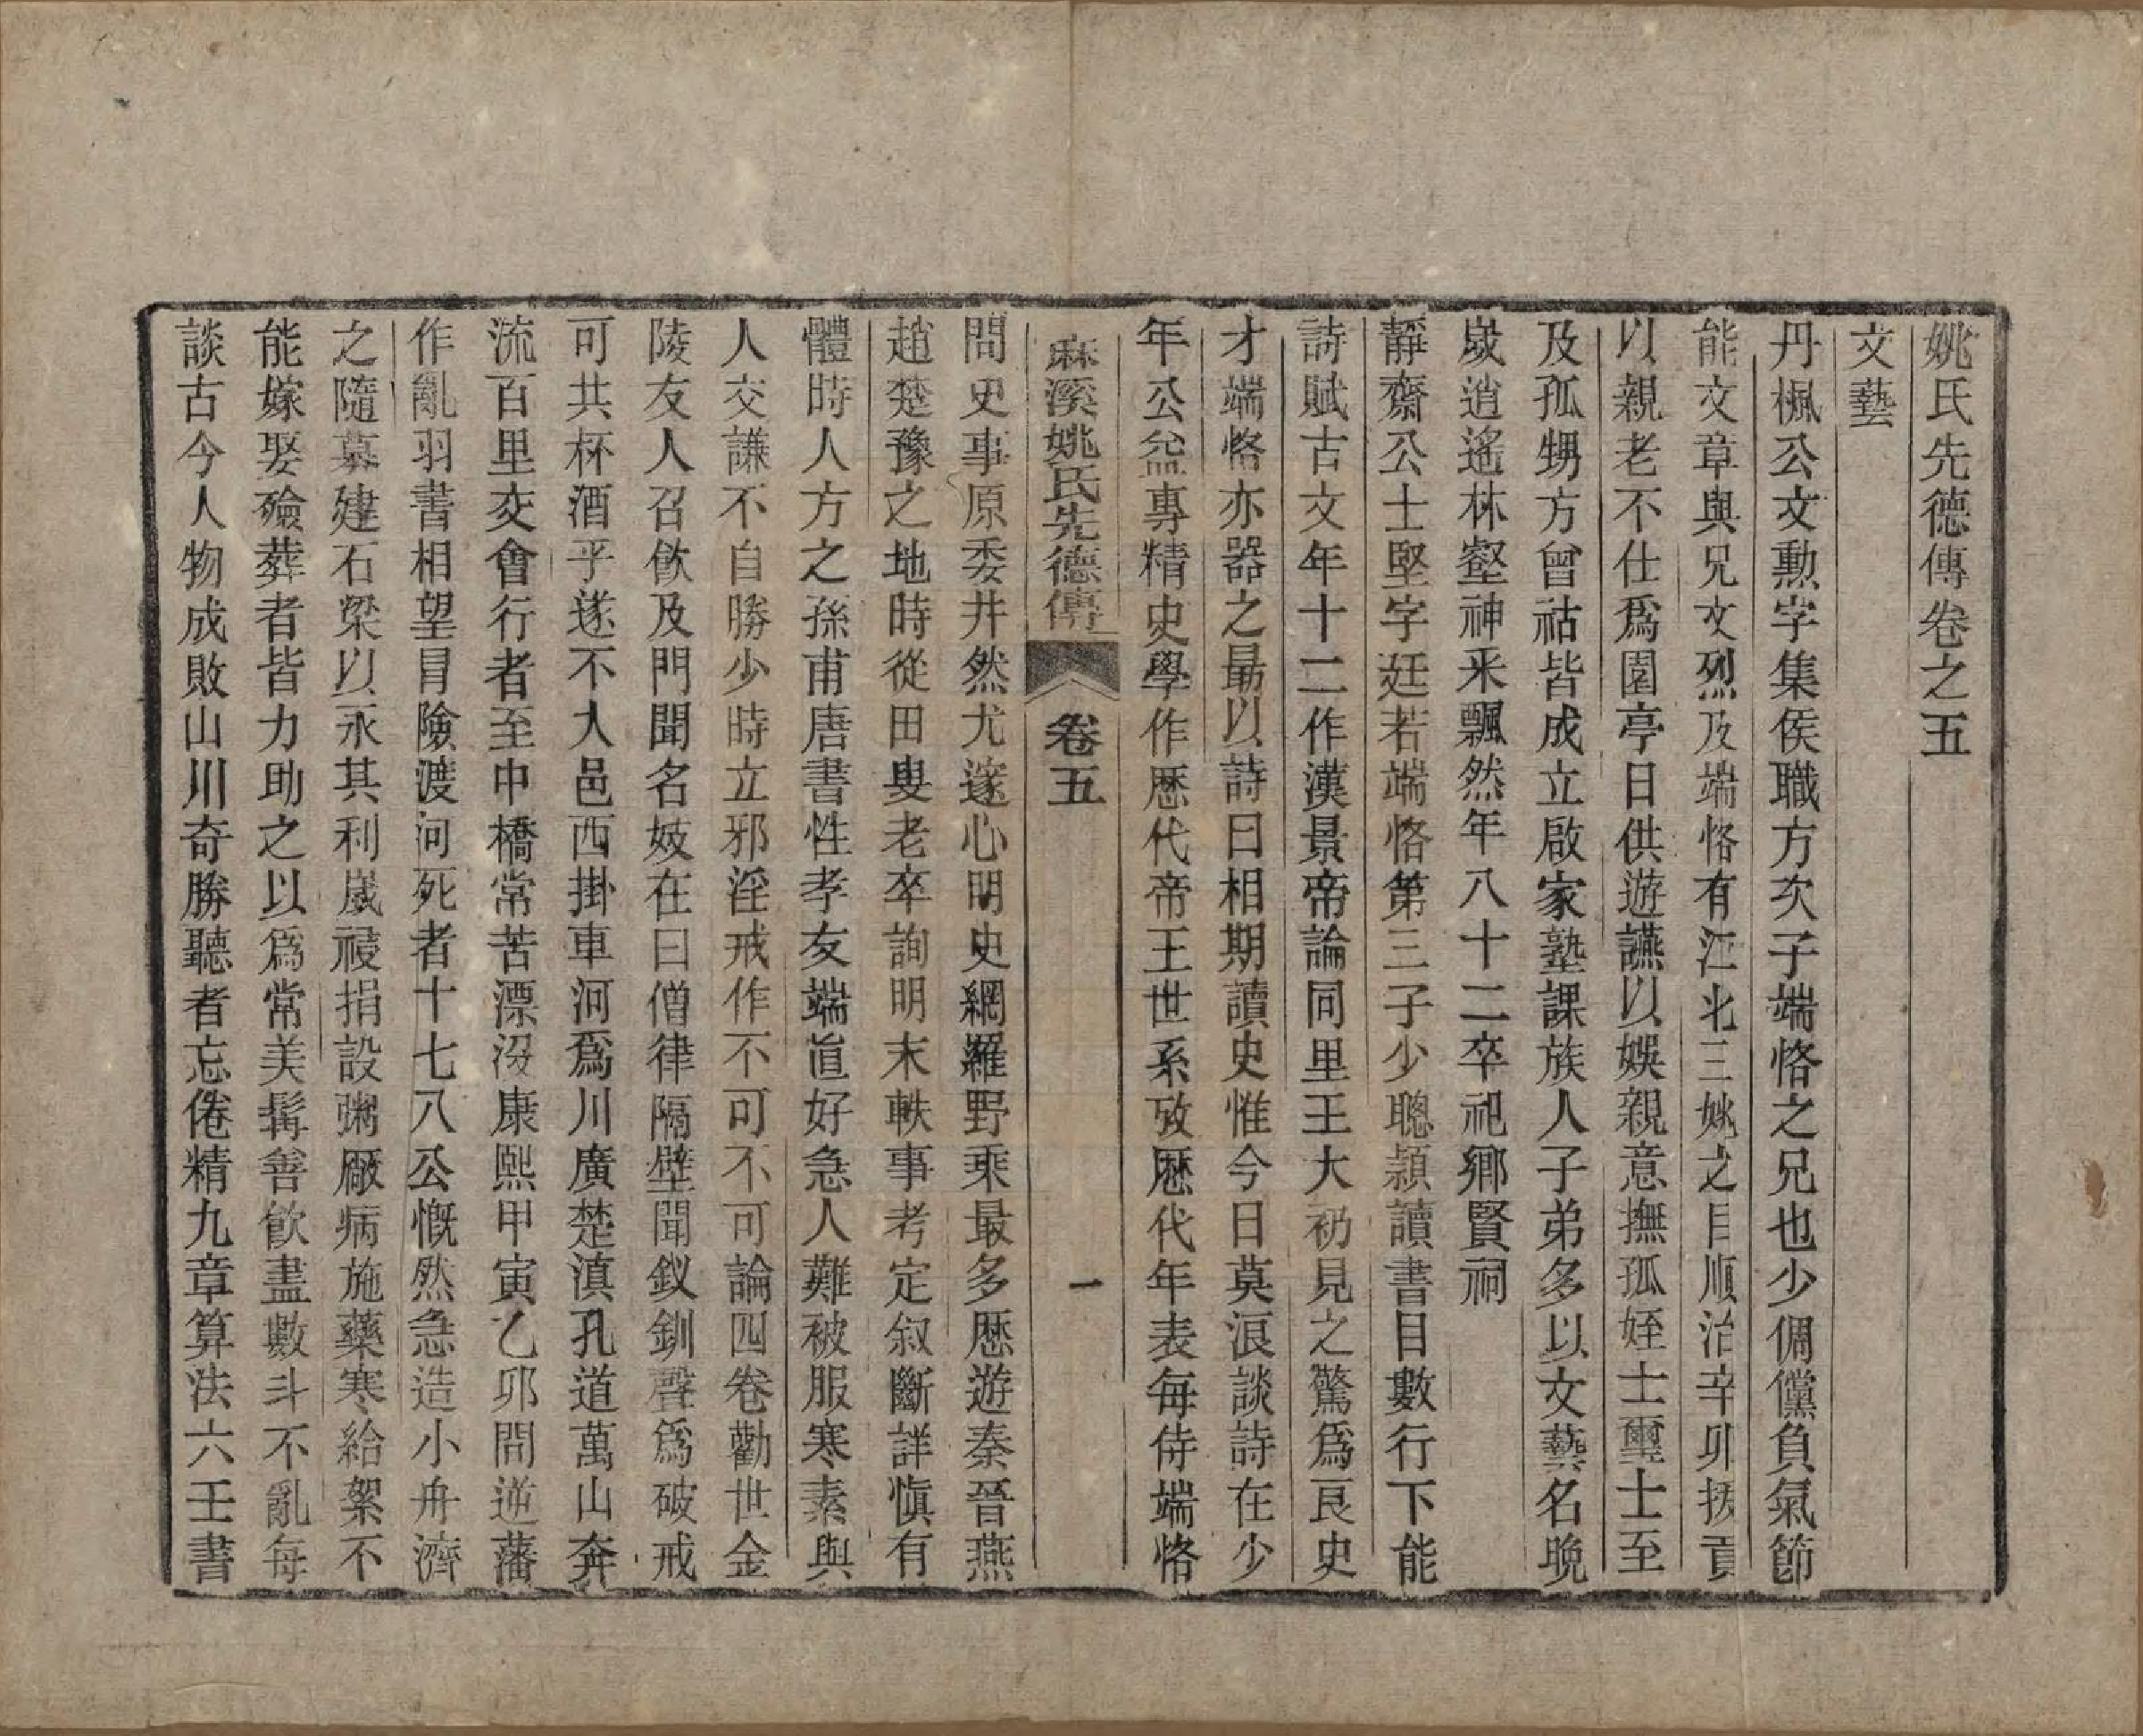 姚氏先德傳卷之五
文藝
丹楓公文勳字集侯職方次子端恪之兄也少倜儻負氣節
能文章與兄文烈及端恪有江北三姚之目順治辛卯拔貢
以親老不仕爲園亭日供遊讌以娛親意撫孤姪士璽士至
及孤甥方曾祜皆成立啟家塾課族人子弟多以文藝名晩
歲逍遙林壑神釆飄然年八十二卒祀鄉賢祠
靜齋公士堅字廷若端恪第三子少聰頴讀書目數行下能
詩賦古文年十二作漢景帝論同里王大礽見之驚爲良史
才端恪亦器之最以詩曰相期讀史惟今日莫浪談詩在少
年公益專精史學作歴代帝王世系攷歴代年表每侍端恪
麻溪姚氏先德傳 卷五 一
問史事原委井然尤邃心明史網羅野乘最多歴遊秦晉燕
趙楚豫之地時從田叟老卒詢明末軼事考定叙斷詳愼有
體時人方之孫甫唐書性孝友端直好急人難被服寒素與
人交謙不自勝少時立邪淫戒作不可不可論四卷勸世金
陵友人召飮及門聞名妓在曰僧律隔壁聞釵釧聲爲破戒
可共杯酒乎遂不入邑西掛車河爲川廣楚滇孔道萬山奔
流百里交會行者至中橋常苦漂沒康熙甲寅乙卯間逆藩
作亂羽書相望冒險渡河死者十七八公慨然急造小舟濟
之隨募建石梁以永其利歲祲捐設粥厰病施藥寒給絮不
能嫁娶殮葬者皆力助之以爲常美髯善飮盡數斗不亂每
談古今人物成敗山川奇勝聽者忘倦精九章算法六壬書